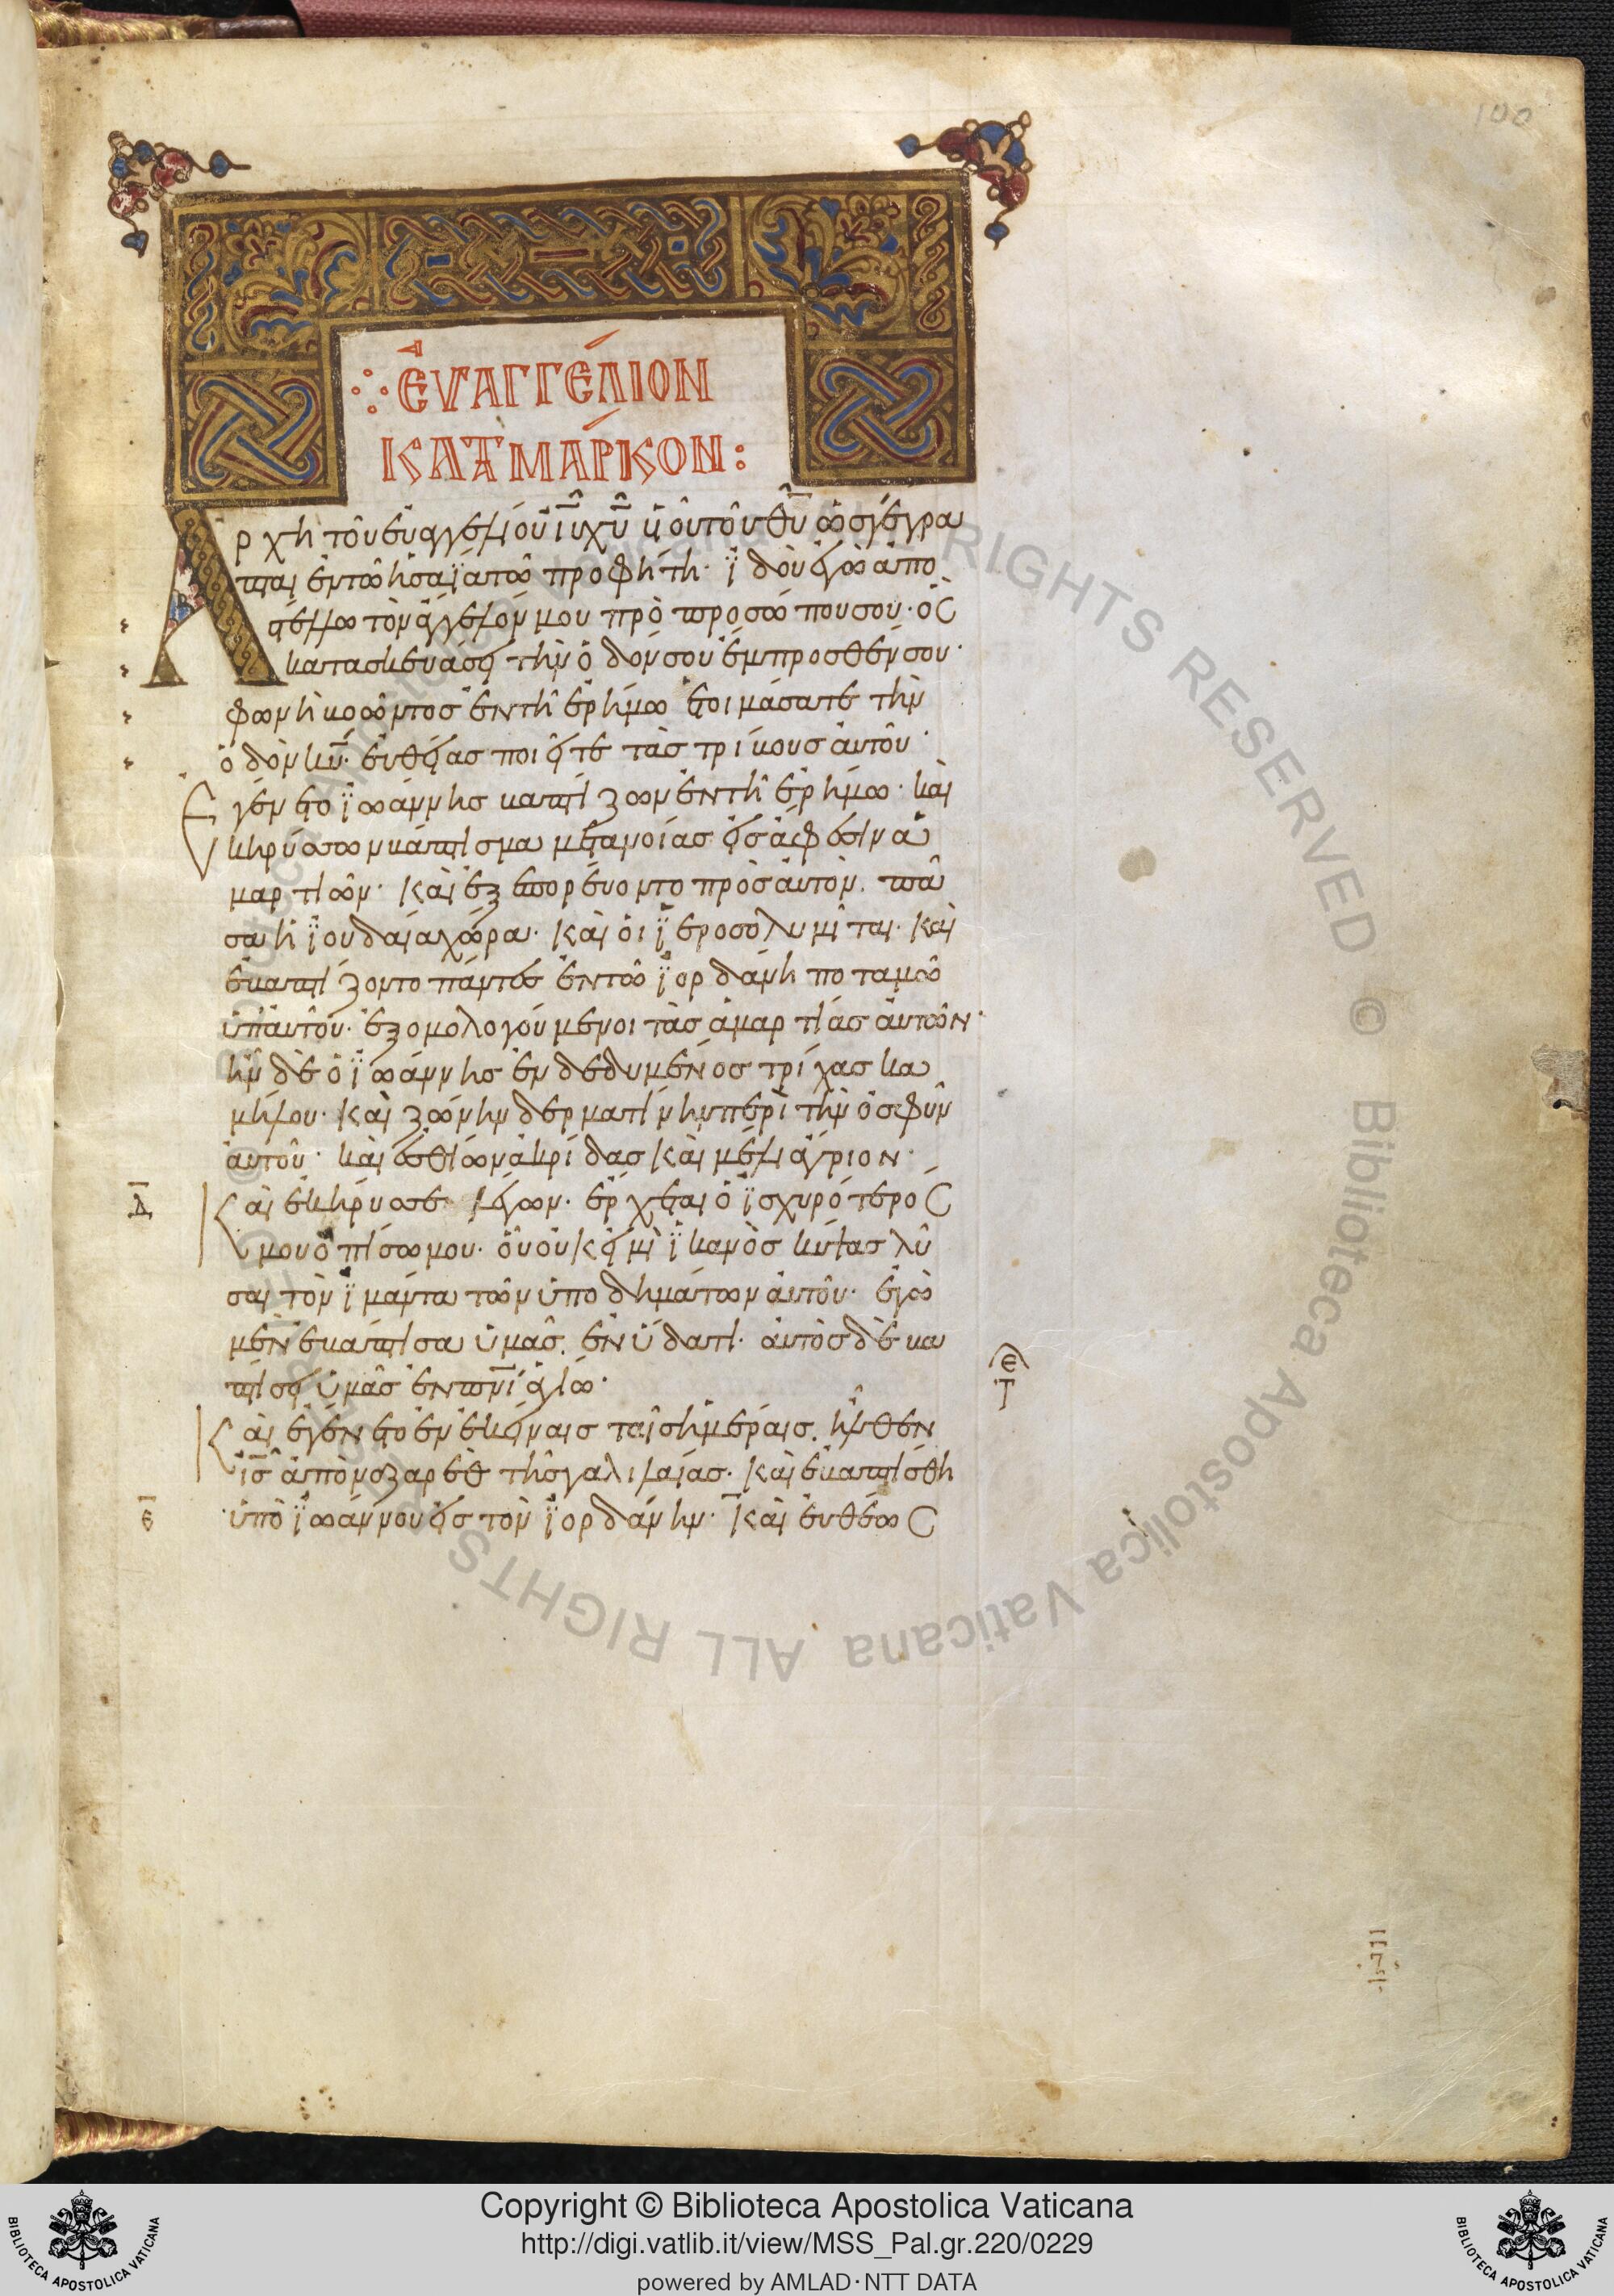 100
ΕΥΑΓΓΕΛΙΟΝ
ΚΑΤΑ ΜΑΡΚΟΝ:
Ἀρχὴ τοῦ εὐαγγελίου ιῡ χῡ υἱοῦ τοῦ θῡ ὡς γέγρα
πται ἐν τῶ ἡσαΐα τῶ προφήτη· ἰδοὺ ἐγὼ ἀπο
στέλλω τὸν ἄγγελόν μου πρὸ προσώπου σου· ὃς
κατασκευάσει τὴν ὁδόν σου ἔμπροσθέν σου·
φωνὴ βοῶντος ἐν τῆ ἐρήμω ἑτοιμάσατε τὴν
ὁδὸν κῡ· εὐθείας ποιεῖτε τὰς τρίβους αὐτοῦ·
Ἐγένετο ἰωάννης βαπτίζων ἐν τῆ ἐρήμω· καὶ
κηρύσσων βάπτισμα μετανοίας εἰς ἄφεσιν ἁ
μαρτιῶν· καὶ ἐξεπορεύοντο πρὸς αὐτὸν. πᾶ
σα ἡ ἰουδαία χώρα· καὶ οἱ ἱεροσολυμῖται· καὶ
ἐβαπτίζοντο πάντες ἐν τῶ ἰορδάνη ποταμῶ
ὑπ αὐτοῦ· ἐξομολογούμενοι τὰς ἁμαρτίας αὐτῶν·
ἦν δὲ ὁ ἰωάννης ἐνδεδυμένος τρίχας κα
μήλου· καὶ ζώνην δερματίνην περὶ τὴν ὀσφῦν
αὐτοῦ· καὶ ἐσθίων ἀκρίδας καὶ μέλι ἄγριον·
Δ Καὶ ἐκήρυσσε λέγων· ἔρχεται ὁ ἰσχυρότερος
μου ὀπίσω μου· οὗ οὐκ εἰμὶ ἱκανὸς κύψας λῦ
σαι τὸν ἱμάντα τῶν ὑποδημάτων αὐτοῦ· ἐγὼ
μὲν ἐβάπτισα ὑμᾶς. ἐν ὕδατι· αὐτὸς δὲ βα
πτίσει ὑμᾶς ἐν πνῑ ἁγίω·
Καὶ ἐγένετο ἐν ἐκείναις ταῖς ἡμέραις. ἦλθεν
ἰς̄ ἀπὸ ναζαρὲθ τῆς γαλιλαίας· καὶ ἐβαπτίσθη
ε ὑπὸ ἰωάννου εἰς τὸν ἰορδάνην· καὶ εὐθέως
Copyright © Biblioteca Apostolica Vaticana
http://digi.vatlib.it/view/MSS_Pal.gr.220/0229
powered by AMLAD·NTT DATA
BIBLIOTECA APOSTOLICA VATICANA
BIBLIOTECA APOSTOLICA VATICANA